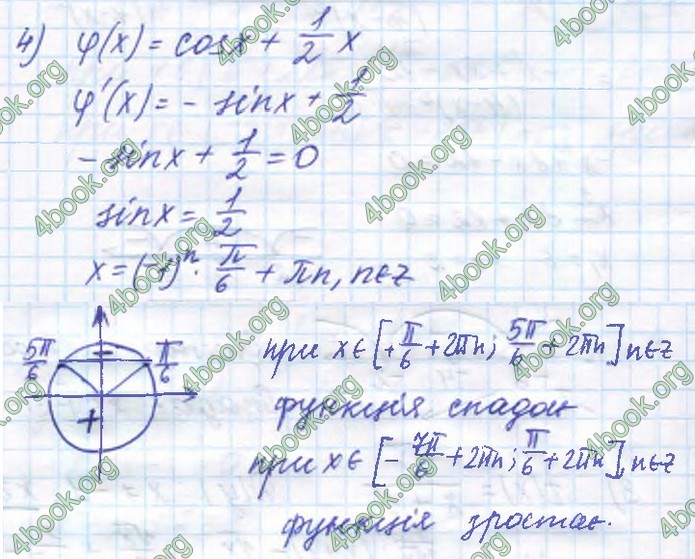 4) φ(x) = cosx + 1/2 x
φ'(x) = - sinx + 1/2
- sinx + 1/2 = 0
sinx = 1/2
x = (-1)^n · π/6 + πn, n∈Z
5π/6 - π/6
+
при x∈[+π/6 + 2πn; 5π/6 + 2πn], n∈Z
функція спадає
при x∈[-7π/6 + 2πn; π/6 + 2πn], n∈Z
функція зростає.
4book.org